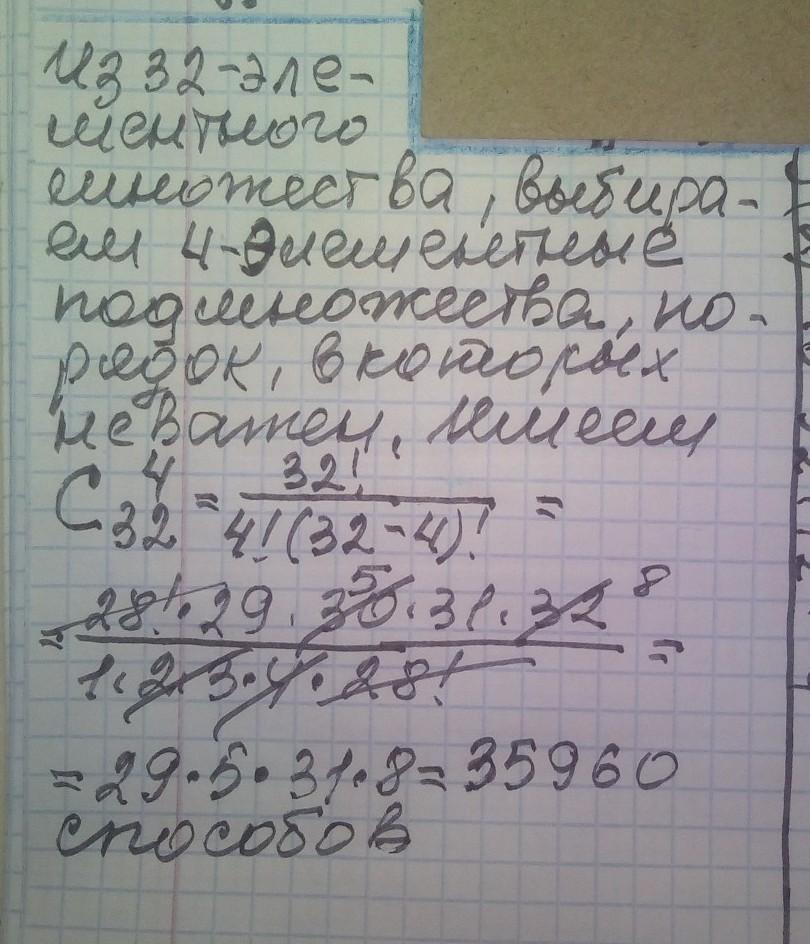 Из 32-эле-
ментного
множества, выбира-
ем 4-элементные
подмножества, по-
рядок, в которых
не важен. Имеем
C₃₂⁴ = 32! / 4!(32-4)! =
= 28!·29·30·31·32 / 1·2·3·4·28! = 5 8
= 29·5·31·8 = 35960
способов